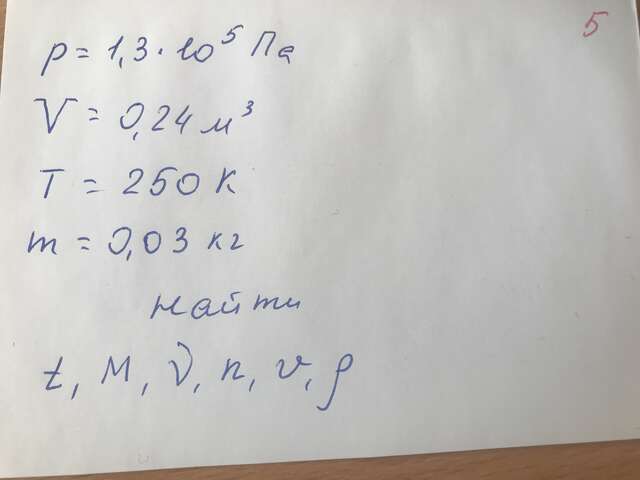 p = 1,3 · 10⁵ Па
V = 0,24 м³
T = 250 К
m = 0,03 кг
найти
t, M, ν, n, v, ρ
5